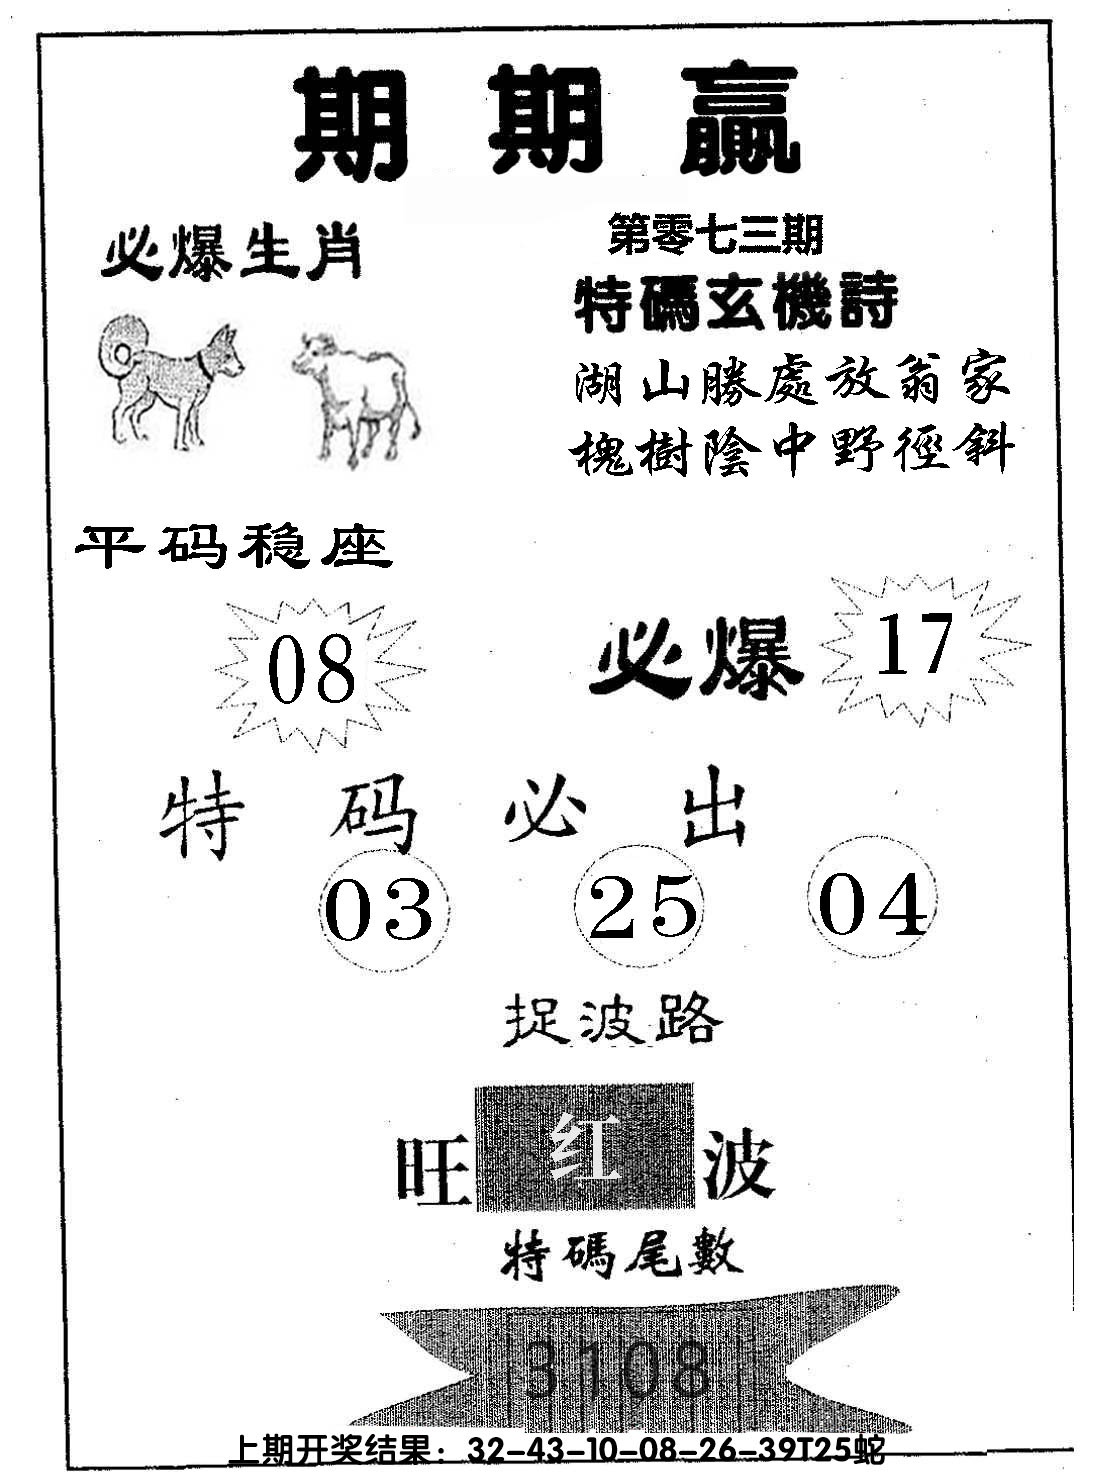 期期赢
必爆生肖
第零七三期
特碼玄機詩
湖山勝處放翁家
槐樹陰中野徑斜
平码稳座
08
必爆 17
特码必出
03 25 04
捉波路
旺红波
特碼尾數
3108
上期开奖结果：32-43-10-08-26-39T25蛇